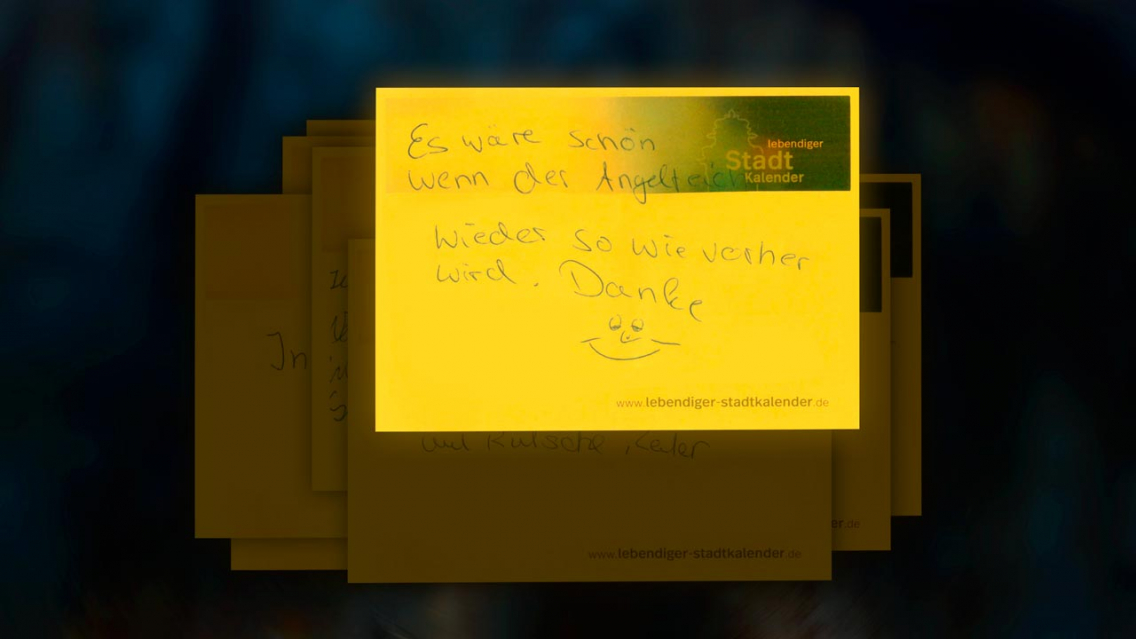 Es wäre schön
lebendiger
Stadt
Kalender
wenn der Angelteich
wieder so wie vorher
wird. Danke
www.lebendiger-stadtkalender.de
In
und Kutsche
er.de
www.lebendiger-stadtkalender.de